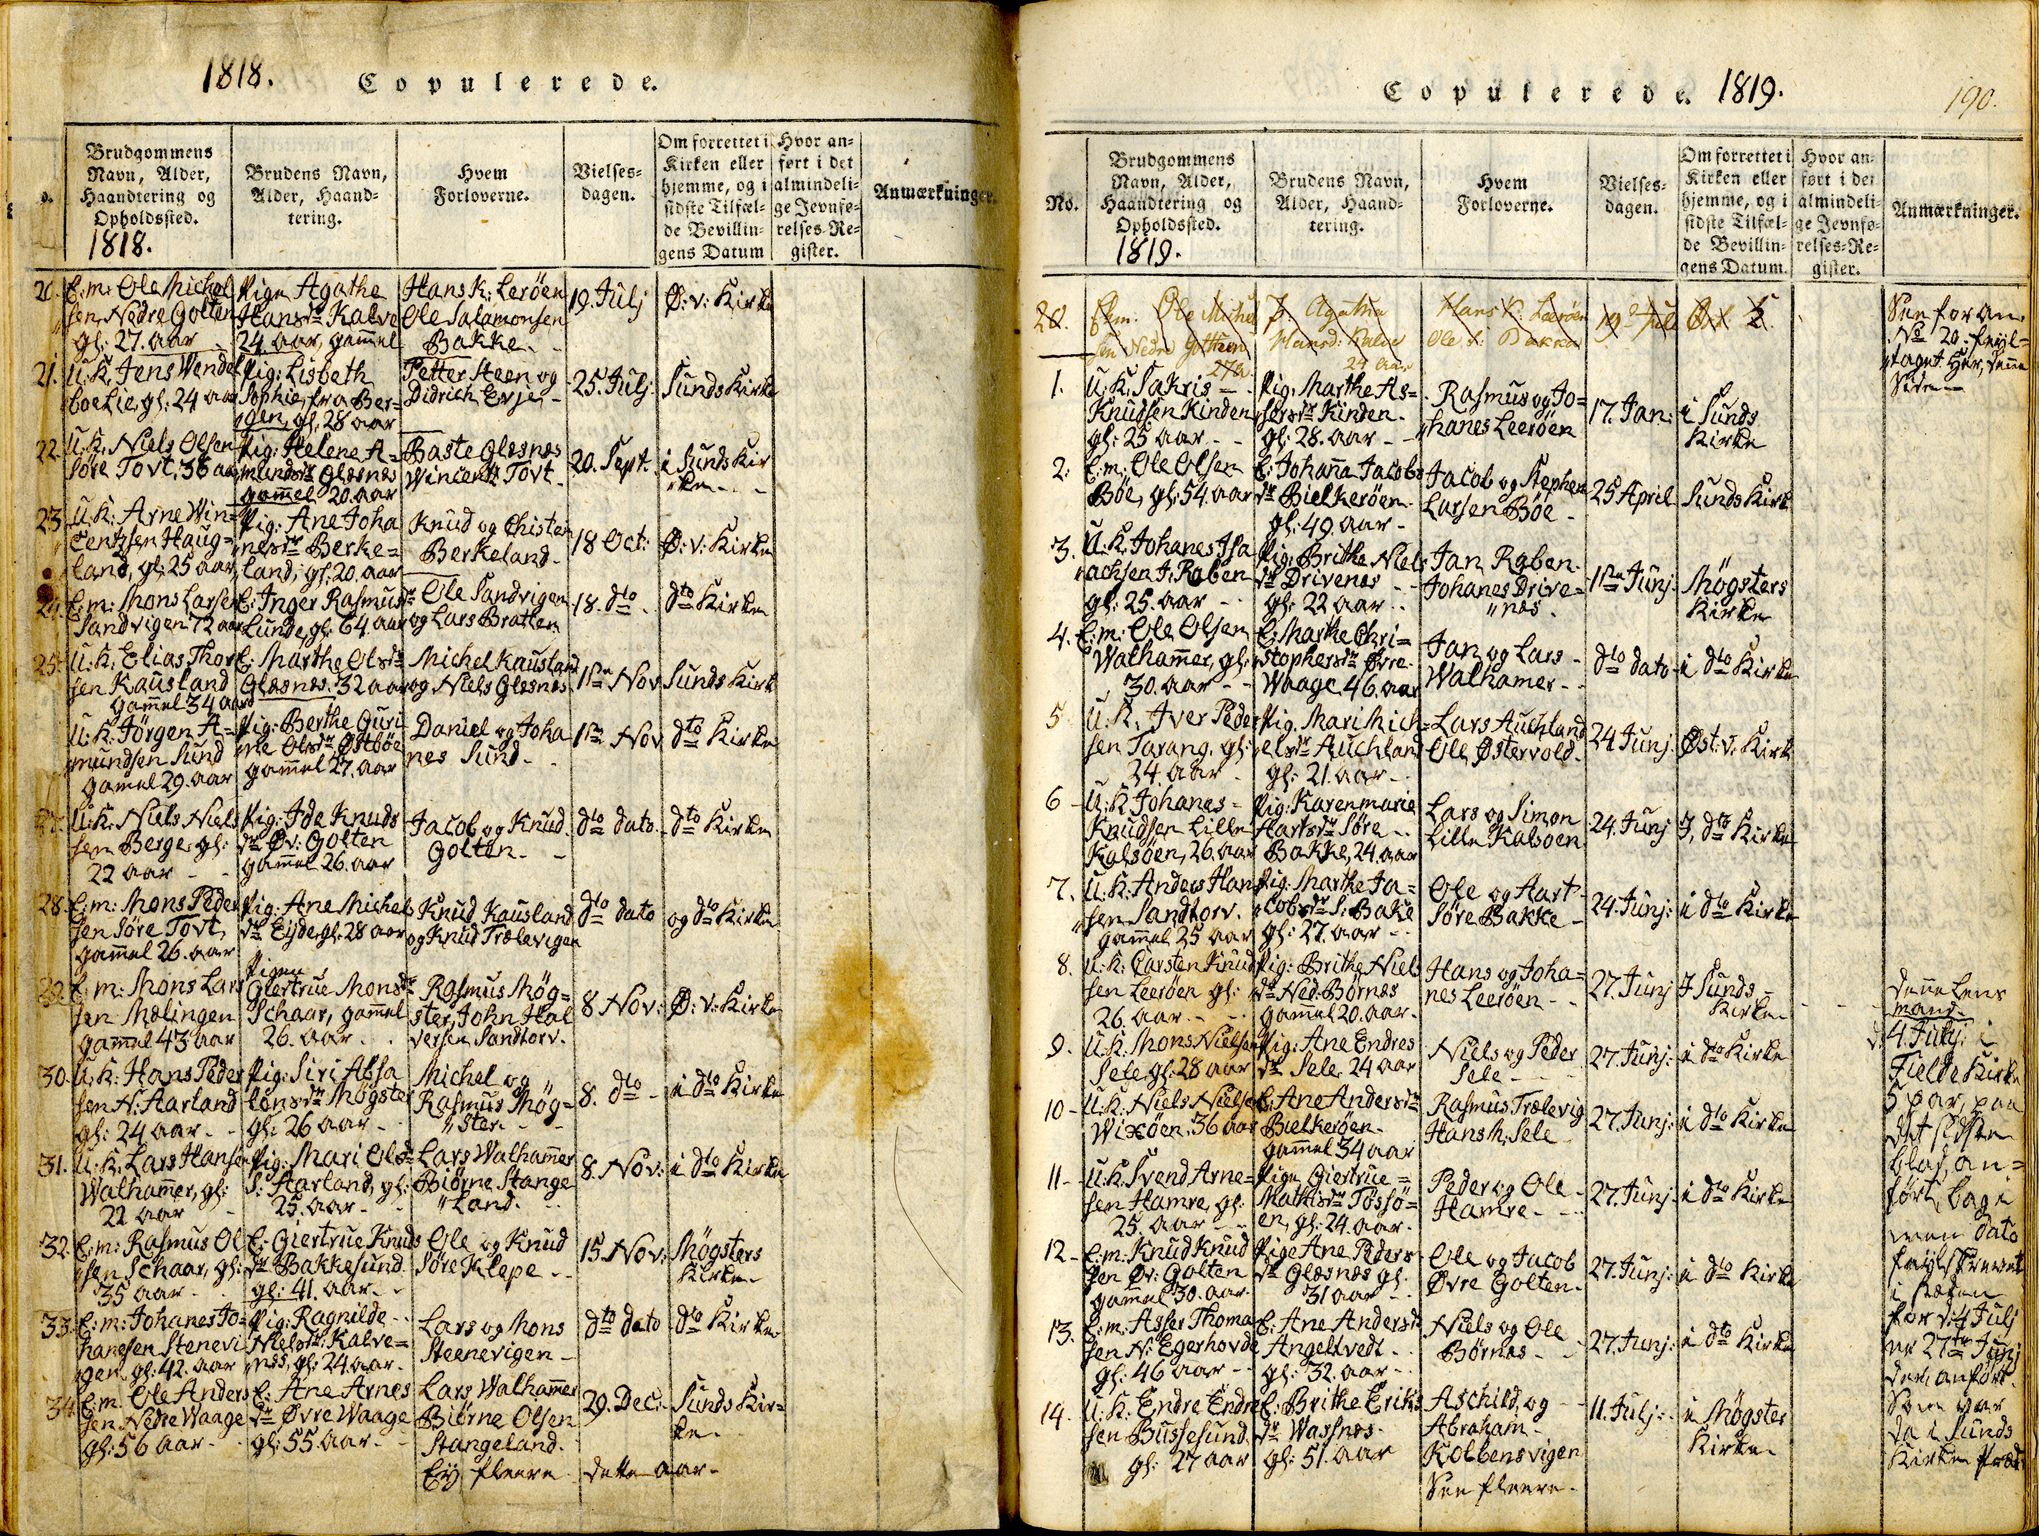 1818. Copulerede.
Brudgommens
Navn, Alder,
Haandtering og
Opholdssted.
1818.
Brudens Navn,
Alder, Haand-
tering.
Hvem
Forloverne.
Vielses-
dagen.
Om forrettet i
Kirken eller
hjemme, og i
sidste Tilfæl-
de Bevillin-
gens Datum
Hvor an-
ført i det
almindeli-
ge Jevnfø-
relses-Re-
gister.
Anmærkninger.
20. E: m: Ole Michel
sen Nedre Golten
gl: 27. aar
Pige Agathe
Hansdr Kalve
24 aar, gammel
Hans K: Leröen
Ole Salamonsen
Bakke.
19. Julj
Ø: v: Kirke
21. U: K. Jens Wendel
boe Lie, gl: 24 aar
Pig: Lisbeth
Sophie, fra Ber=
gen, gl: 28 aar
Petter Steen og
Didrich Erje,
25. Julj:
Sunds Kirke
22. U: K. Niels Olsen
Søre Tovt, 36 aar
Pig: Helene A=
mundsdr Glæsnæs
gammel 20. aar
Baste Glesnæs
Wincentz Tovt.
20. Sept:
i Sunds Kir
ke
23. U: K: Arne Win=
centzsen Haug=
land, gl: 25 aar,
Pig: Ane Joha
nesdr Berke=
land, gl: 20. aar
Knud og Christen
Berkeland.
18 Oct:
Ø: v: Kirke
24. E: m: Mons Larsen
Sandvigen 72 aar
E: Inger Rasmusdr
Lunde, gl: 64 aar
Ole Sandvigen
og Lars Bratten
18. dto
dto Kirke
25. U: K. Elias Thor
sen Kausland
gammel 34 aar
E: Marthe Olsdr
Glæsnæs. 32 aar
Michel Kausland
og Niels Glesnes
1ste Nov
Sunds Kirk
U: K: Jörgen A=
mundsen Sund
gamel 29. aar
Pig: Berthe Guri
ne Olsdr Østbøe
gammel 27. aar
Daniel og Joha
nes Sund.
1ste Nov
dto Kirke
27. U: K: Niels Niels
sen Berge, gl:
22 aar
Pig: Ide Knuds
dr Øv: Golten
gammel 26. aar
Jacob og Knud
Golten.
dto dato.
dto Kirke
28. E: m: Mons Peder
sen Søre Tovt,
gammel 26. aar
Pig: Ane Michels
dr Eyde gl: 28 aar
Knud Kausland
og Knud Trælevigen
dto dato
og dto Kirke
29. E: m: Mons Lars
sen Mælingen
gammel 43 aar
Pigen
Giertrue Monsdr
Schaar, gammel
26. aar.
Rasmus Møg=
ster, John Hal
versen Sandtorv.
8 Nov:
Ø: v: Kirke
30. U: K: Hans Peder
sen N: Aarland
gl: 24 aar.
Pig: Siri Absa
lonsdr Møgster
gl: 26 aar.
Michel og
Rasmus Møg=
ster.
8. dto
i dto Kirke
31. U: K. Lars Hansen
Walhammer, gl:
22 aar
Pig: Mari Olsdr
S: Aarland, gl:
25. aar.
Lars Walhammer
Biørne Stange
land.
8. Nov:
i dto Kirke
32. E: m: Rasmus Ol
sen Schaar, gl:
35 aar
E: Giertrue Knuds
dr Bakkesund
gl: 41. aar.
Ole og Knud
Søre Klepe
15. Nov:
Møgsters
Kirke
33. E: m: Johanes Jo=
hanesen Stenevi
gen, gl: 42. aar
Pig: Ragnilde
Nielsdr: Kalve=
næs, gl: 24. aar.
Lars og Mons
Steenevigen
dto dato
dto Kirke
34. E: m. Ole Anders
sen Nedre Waage
gl: 56 aar
E: Ane Arnes
dr Øvre Waage
gl: 55 aar
Lars Walhammer
Biörne Olsen
Stangeland.
29. Dec:
Sunds Kir=
ke.
Ey fleere dette aar.
Copulerede. 1819. 190.
No.
Brudgommens
Navn, Alder,
Haandtering og
Opholdssted.
1819.
Brudens Navn,
Alder, Haand-
tering.
Hvem
Forloverne.
Vielses-
dagen.
Om forrettet i
Kirken eller
hjemme, og i
sidste Tilfæl-
de Bevillin-
gens Datum.
Hvor an-
ført i det
almindeli-
ge Jevnfø-
relses-Re-
gister.
Anmærkninger.
20. Em. Ole Michel
sen Nedre Goltten
27 a.
P. Agatha
Hansd: Kalve
24 aar
Hans K: Leeröen
Ole S: Bakke
19d Juli
Øst K.
See foran
No 20. feyl=
taget Her, denne
Siden
1. U: K. Sakris
Knudsen Kinden
gl: 25 aar
Pig: Marthe As=
sersdr Kinden.
gl: 28. aar
Rasmus og Jo=
hanes Leeröen
17. Jan:
i Sunds
Kirke
2: E: m: Ole Olsen
Böe, gl: 54. aar
E: Johanna Jacobs
dr Bielkeröen.
gl: 49. aar
Jacob og Stephen
Larsen Böe
25 April
Sunds Kirk
3. U: K. Johanes Isa
achsen J: Raben
gl: 25. aar
Pig: Brithe Niels
dr Drivenes
gl: 22 aar
Jan Raben.
Johanes Drive=
næs.
1ste Junj.
Møgsters
Kirke
4. E: m: Ole Olsen
Walhammer, gl:
30. aar
E: Marthe Chri=
stophersdr Øvre.
Waage. 46. aar
Jan og Lars
Walhamer
dto dato
i dto Kirke
5 U: K. Iver Peder
sen Tarang, gl:
24. aar
Pig. Mari Mich=
elsdr Auchland
gl: 21. aar
Lars Auchland
Ole Østervold.
24 Junj.
Øst: v: Kirk
6 U: K Johanes
Knudsen Lille
Kalsöen, 26. aar
Pig: Karenmarie
Hartsdr Søre
Bakke, 24. aar
Lars og Simon
Lille Kalsoen
24. Junj
J, dto Kirke
7. U: K. Anders Han
sen Sandtorv.
gammel 25 aar
Pig: Marthe Ja=
cobsdr S: Bake
gl: 27. aar
Ole og Hart
Søre Bakke
24. Junj:
i dto Kirke
8. U: K: Carsten Knud
sen Leeröen gl:
26. aar
Pig: Brithe Niels
dr Ned: Bornæs
gamel 20. aar.
Hans og Joha=
nes Leeröen
27. Junj
J Sunds
Kirke
9. U: K. Mons Nielsen
Sele, gl: 28 aar
Pig: Ane Endres
dr Sele 24 aar
Niels og Peder
Sele
27. Junj:
i dto Kirke
10 U: K: Niels Nielsen
Wixöen, 36 aar
E: Ane Andersdr
Bielkeröen.
gammel 34 aar
Rasmus Trælevig
Hans M: Sele
27. Junj:
i dto Kirke
11 U: K. Svend Arne=
sen Hamre, gl:
25. aar
Pige Giertrue=
Mathisdr Tøssö=
en, gl: 24. aar.
Peder og Ole
Hamre
27. Junj.
i dto Kirke
12 E: m: Knud Knud
sen Øv: Golten
gammel 30. aar.
Pige Ane Peders
dr Glæsnæs gl.
31 aar
Ole og Jacob
Øvre Golten.
27. Junj:
i dto Kirke
13. E: m: Asser Thoma
sen N: Egerhovde
gl: 46 aar
E: Ane Andersdr
Angeltvedt
gl: 32. aar
Niels og Ole
Börnæs
27. Junj:
i dto Kirke
14. U: K: Endre Endre
sen Bussesund,
gl: 27 aar
E: Brithe Eriks
dr Wassnæs.
gl: 51. aar
Aschild, og
Abraham.
Kolbensvigen
11. Julj:
i Møgster
Kirke.
See fleere.
denne Lens
mand.
d: 4 Julj: i
Fielde Kirke
5 par, paa
det sidste
blad, an=
ført, bag i
men dato
feylskrevet
i steden
for d: 4 Julj
er 27de Junj
der, anført.
Som var
da i Sunds
Kirke